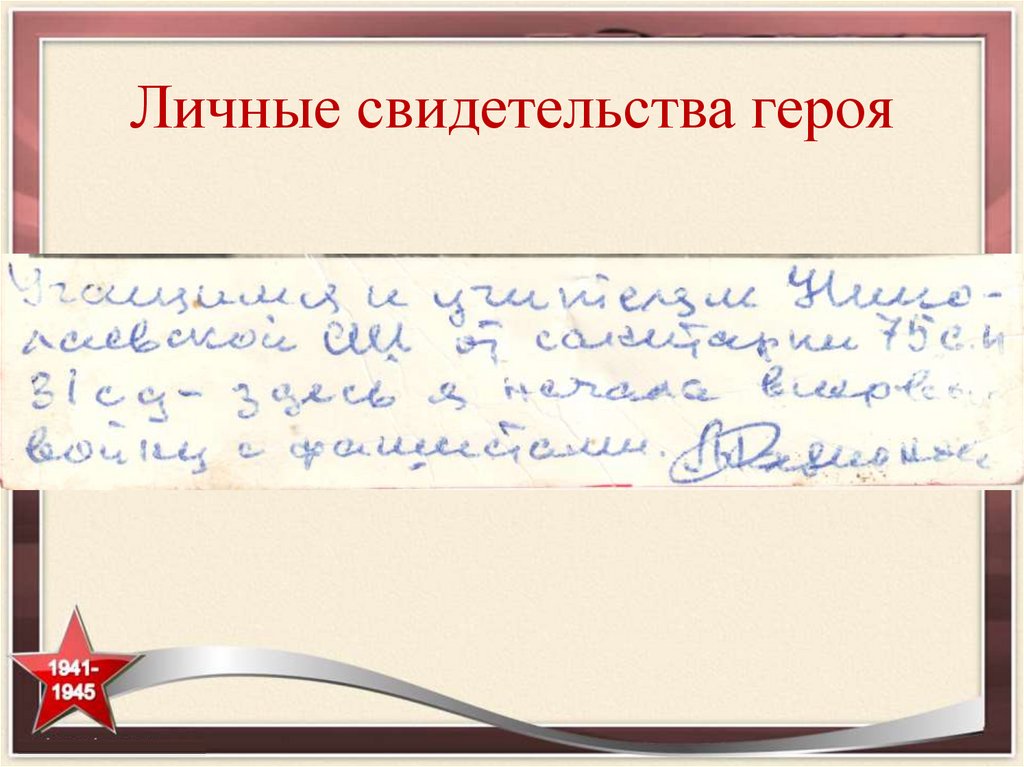 Личные свидетельства героя
Учащимся и учителям Нико-
лаевской СШ от санитарки 75 с.п
31 сд - здесь я начала впервые
войну с фашистами.
1941-
1945